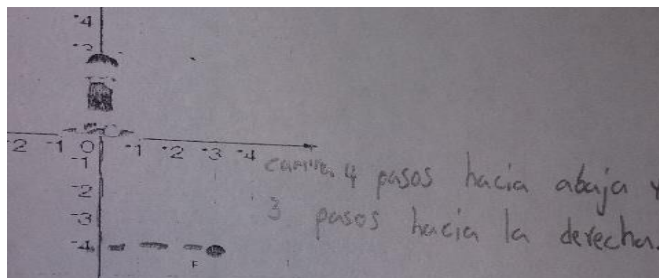 -4
-2
-2 -1 0 -1 -2 -3 -4
-1
-2
-3
-4
F
camina 4 pasos hacia abaja y
3 pasos hacia la derecha.